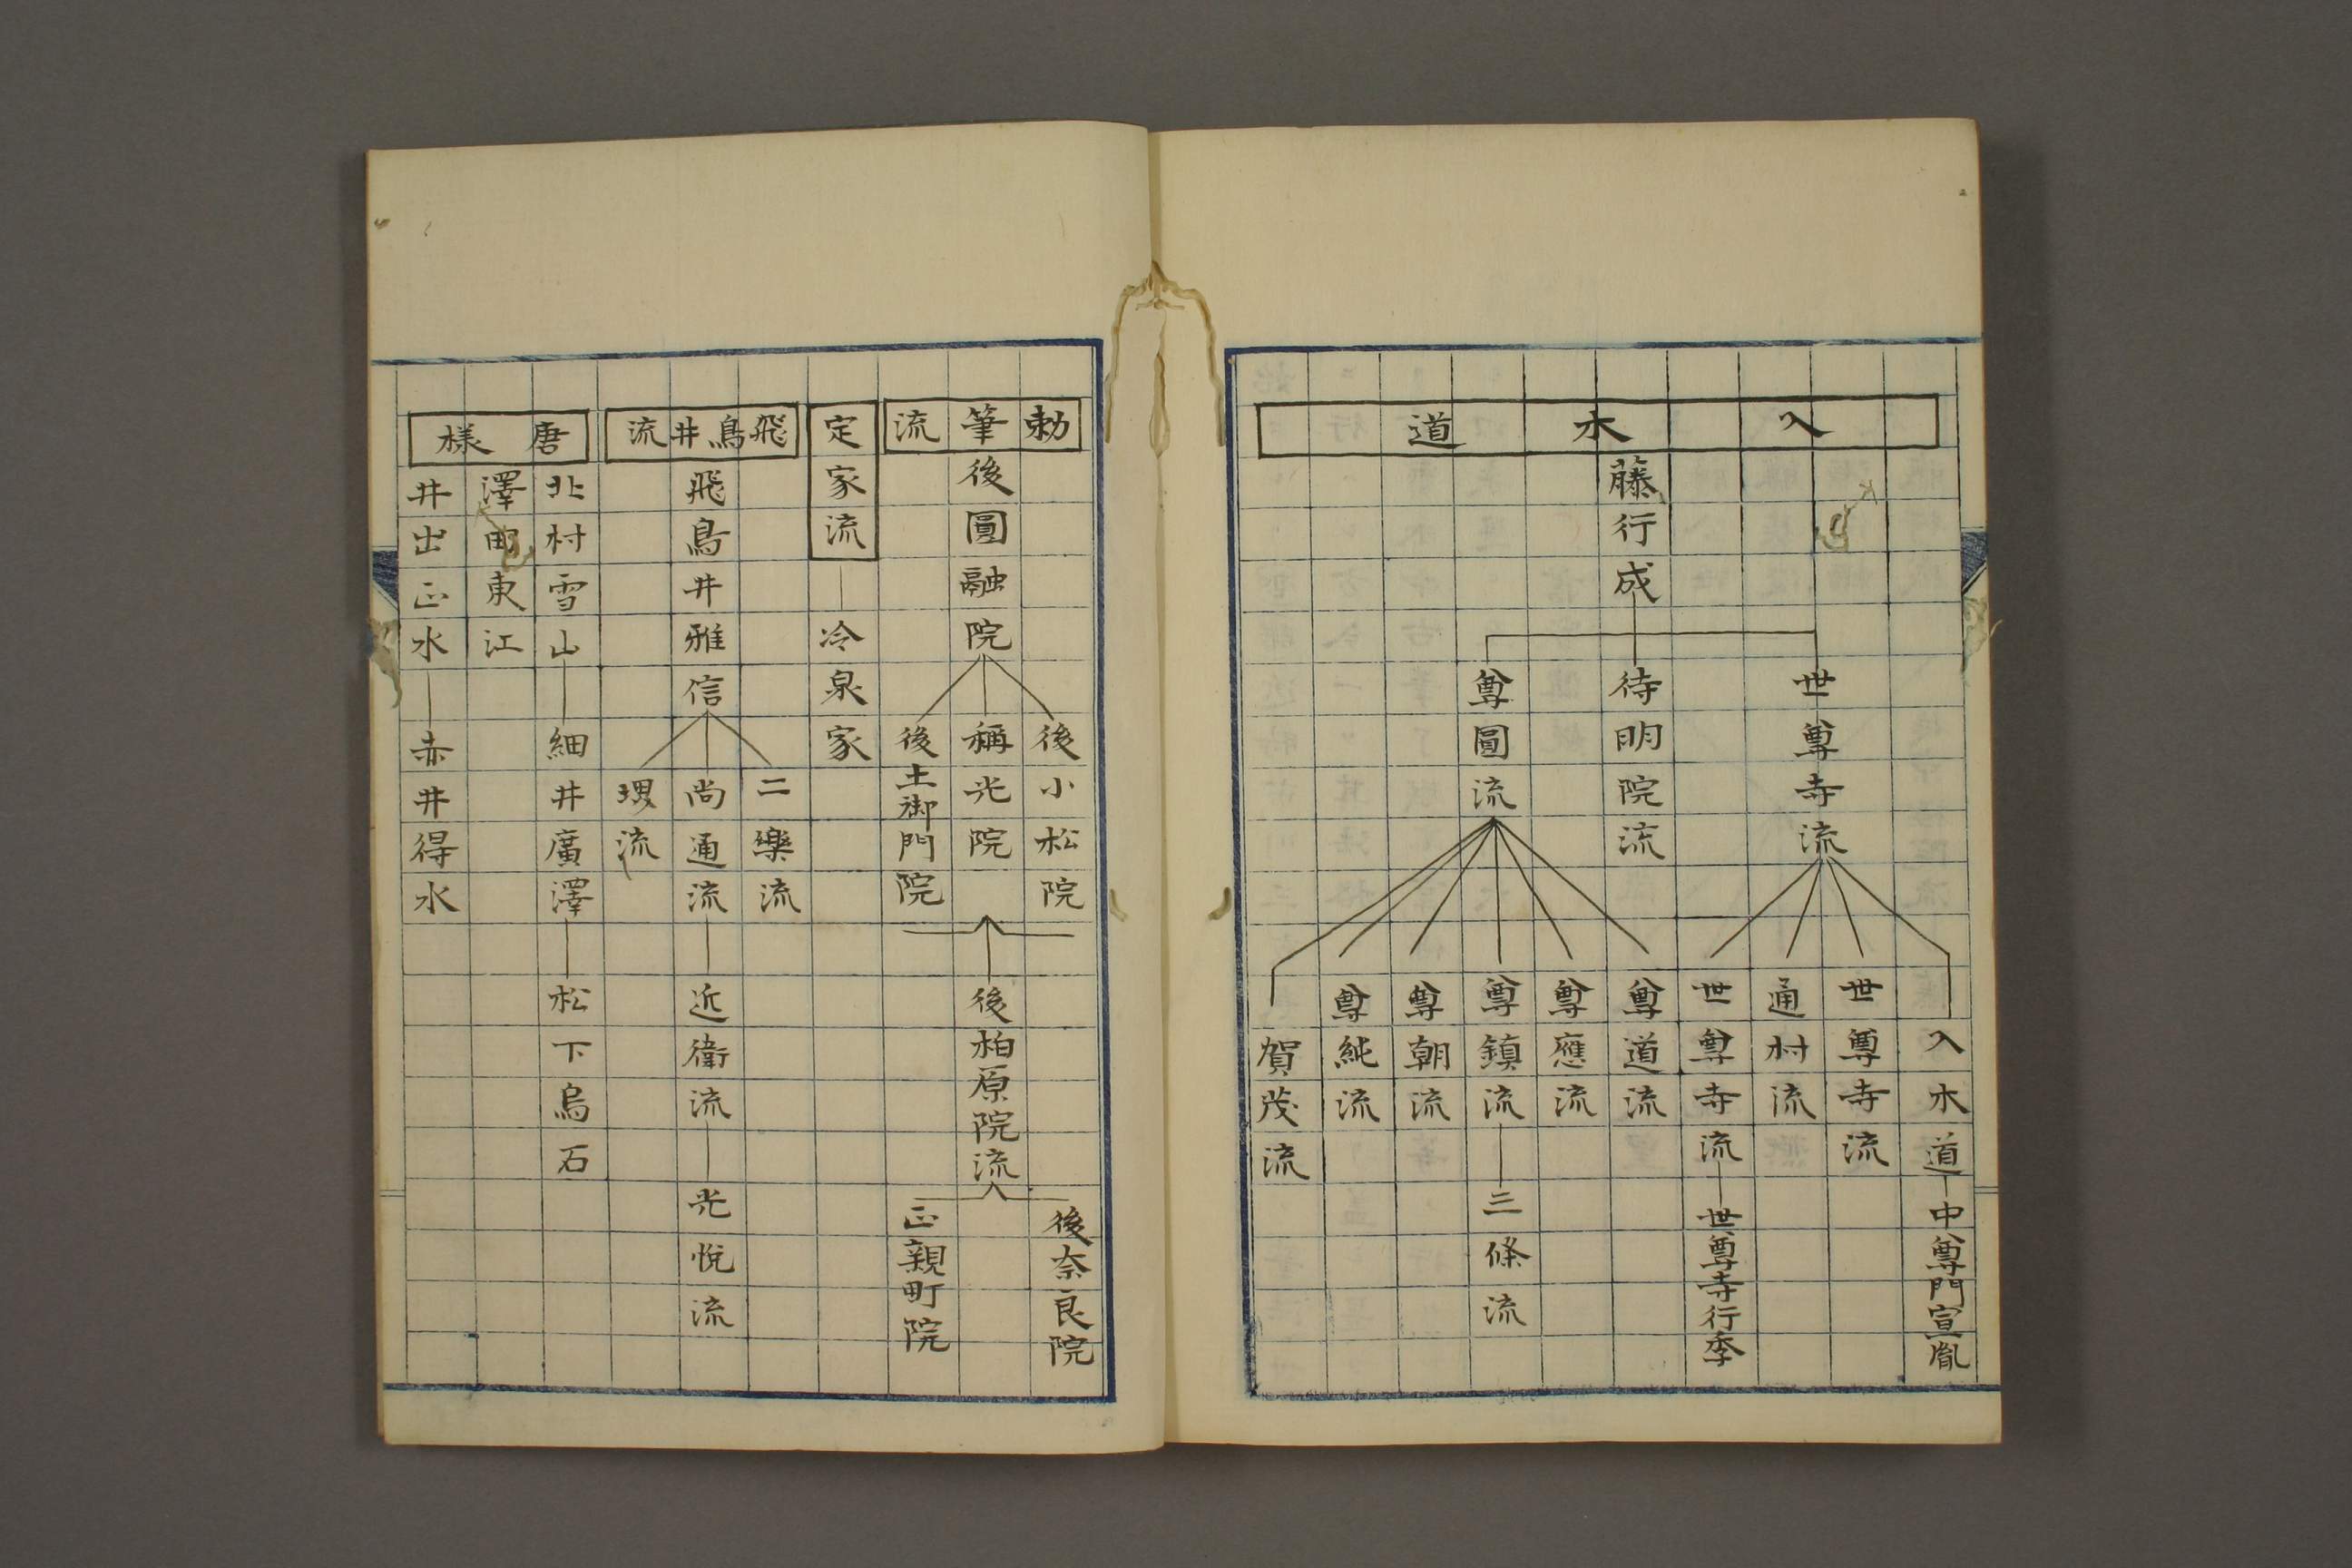 入木道
藤行成
世尊寺流
待明院流
尊圓流
入木道
中尊門宣胤
世尊寺流
通村流
世尊寺流
世尊寺行季
尊道流
尊應流
尊鎮流
三條流
尊朝流
尊純流
賀茂流
勅筆流
後圓融院
後小松院
稱光院
後土御門院
後柏原院流
後奈良院
正親町院
定家流
冷泉家
飛鳥井流
飛鳥井雅信
二樂流
尚通流
近衛流
光悅流
堺流
唐樣
北村雪山
細井廣澤
松下烏石
澤田東江
井出正水
赤井得水